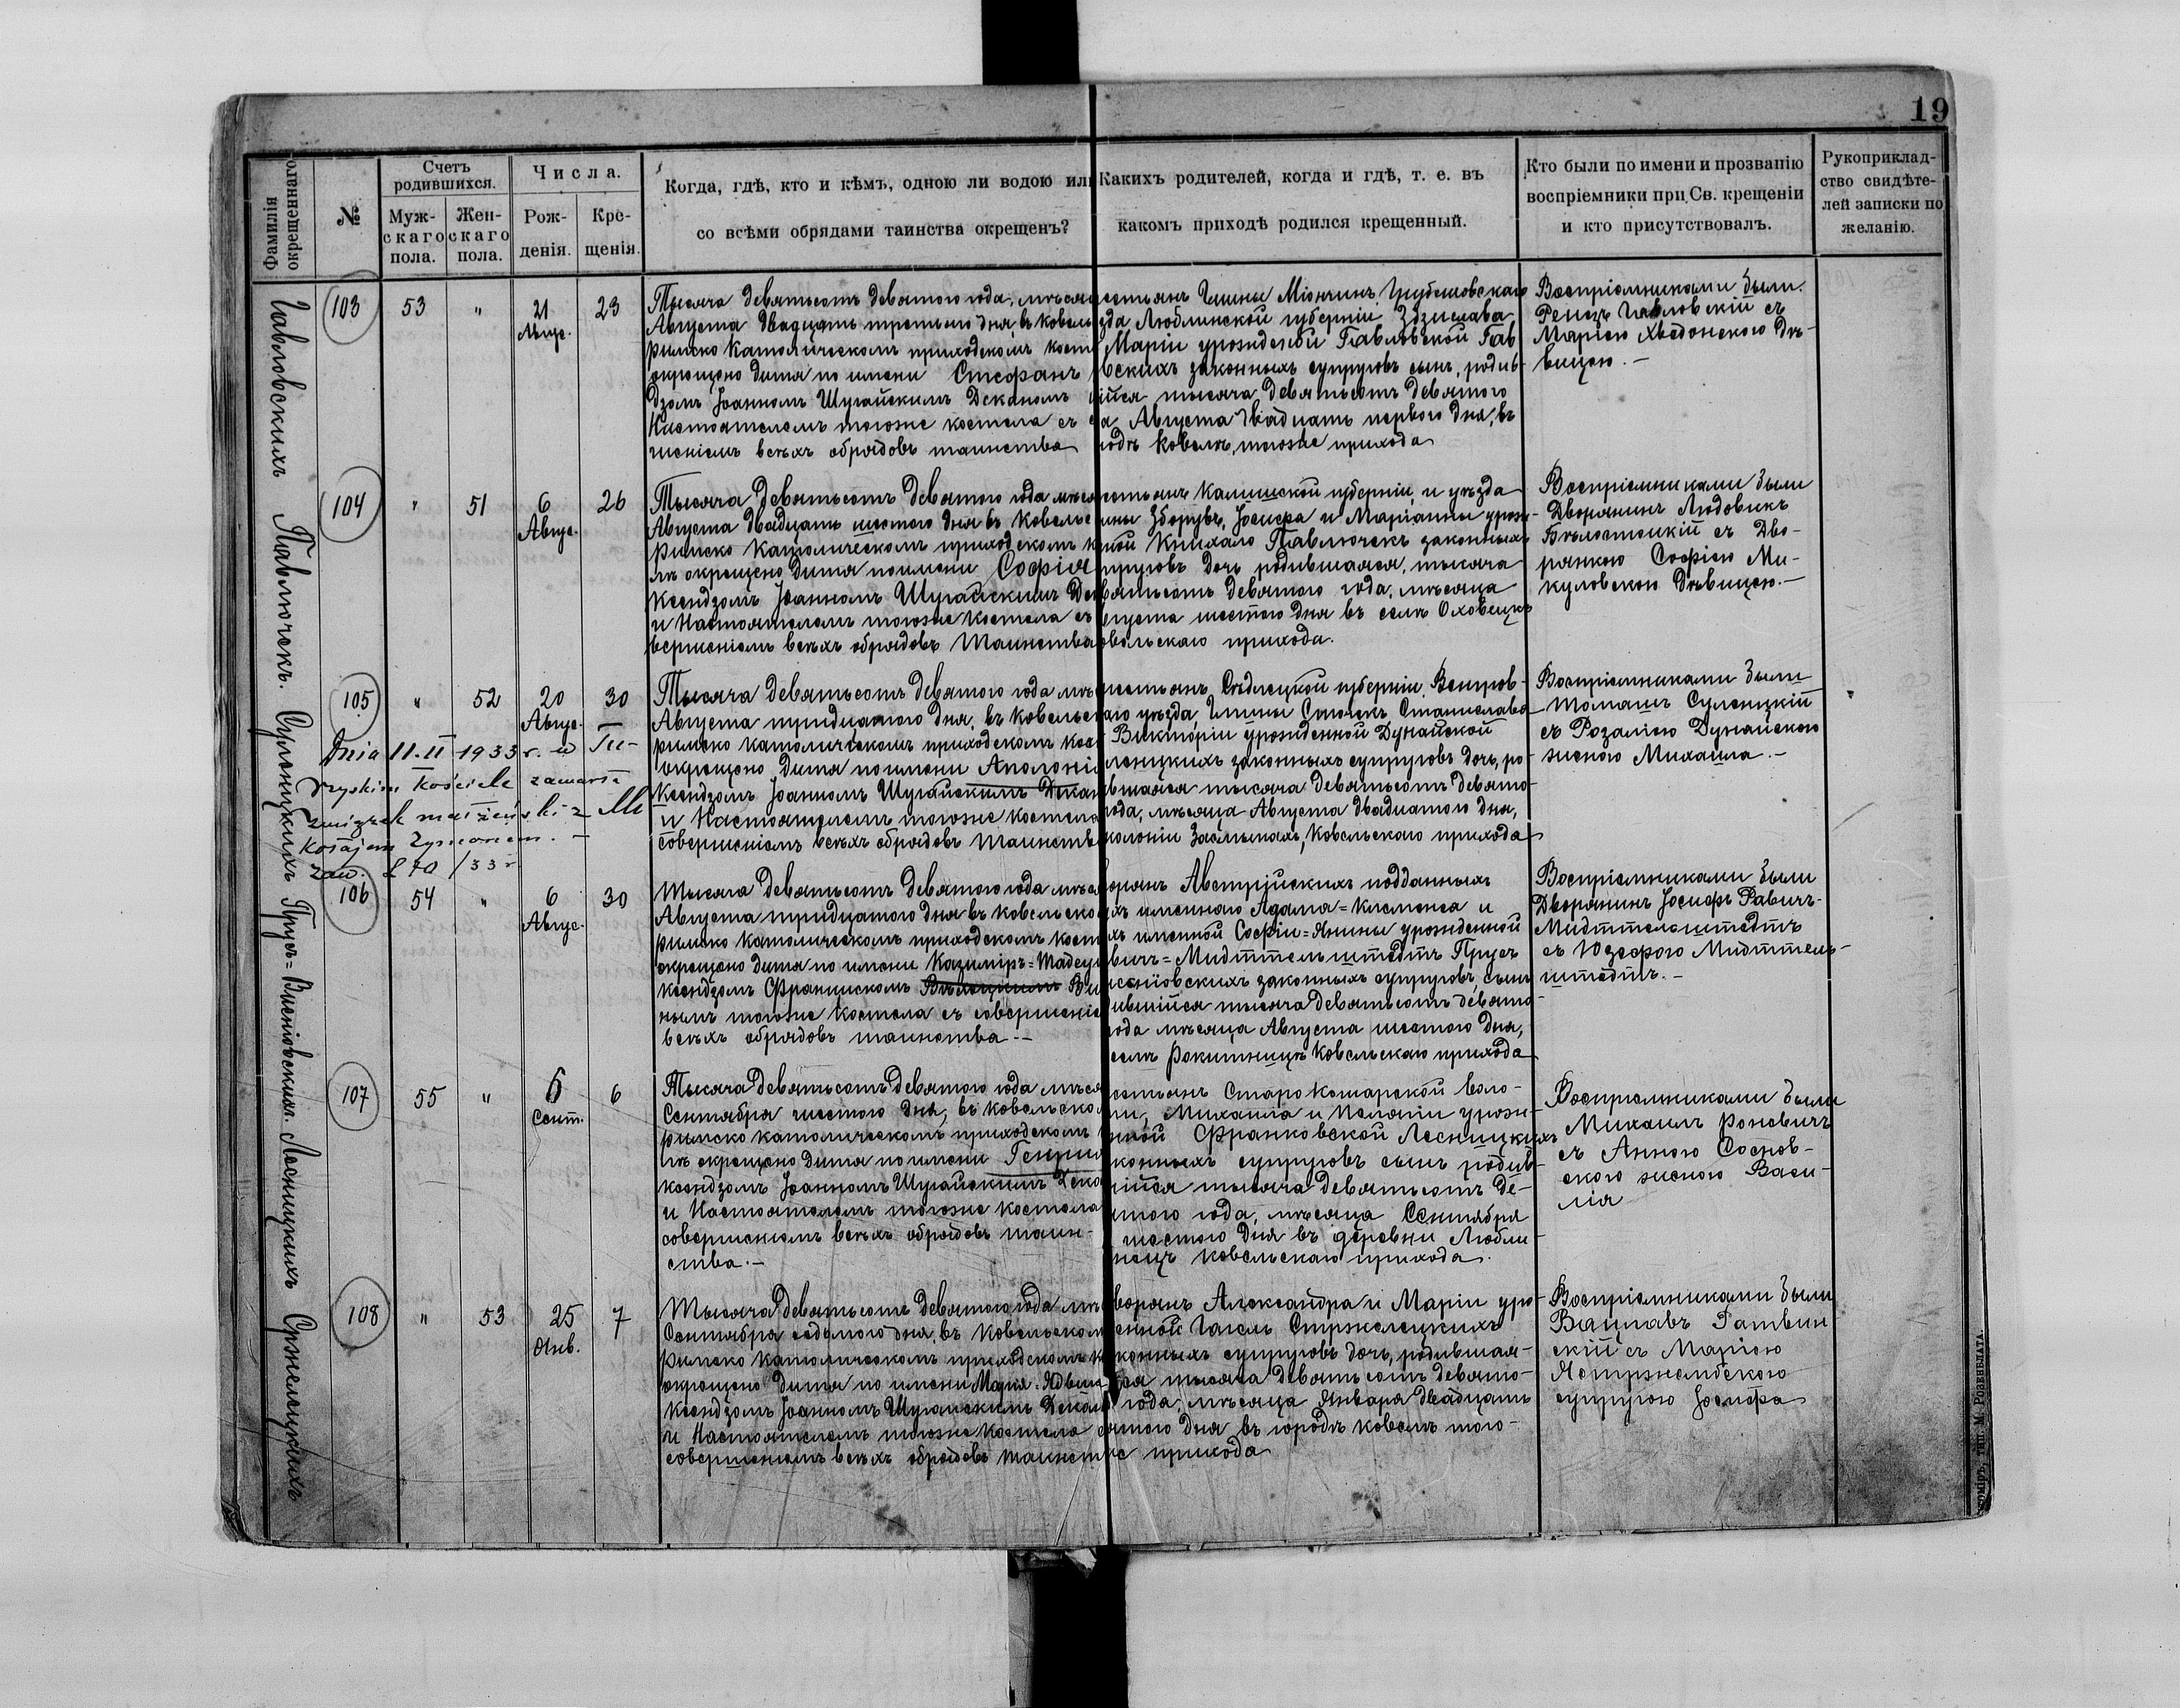 19
Фамилія окрещеннаго.
№
Счетъ родившихся.
Мужскаго пола.
Женскаго пола.
Числа.
Рожденія.
Крещенія.
Когда, гдѣ, кто и кѣмъ, одною ли водою или
со всѣми обрядами таинства окрещенъ?
Какихъ родителей, когда и гдѣ, т. е. въ
какомъ приходѣ родился крещенный.
Кто были по имени и прозванію
воспріемники при Св. крещеніи
и кто присутствовалъ.
Рукоприклад-
ство свидѣте-
лей записки по
желанію.
Гавловскихъ
103
53
"
21
Авгус.
23
Тысяча девятьсотъ девятого года, мѣсяц
Августа двадцать третьего дня, въ ковель
римско католическомъ приходскомъ кост
окрещено дитя по имени Стефанъ
дзомъ Іоанномъ Шугайскимъ Деканомъ
Настоятелемъ тогоже костела съ
шеніемъ всѣхъ обрядовъ таинства
стьянъ Гмины Міончинъ, Грубешовскаго
зда Люблинской губерніи Здзислава
Маріи урожденной Гавловской Гав
вскихъ законныхъ супруговъ сынъ, родив-
ійся тысяча девятьсотъ девятого
а Августа двадцать первого дня, въ
родѣ Ковелѣ, тогоже прихода
Воспріемниками были
Ренезъ Гавловскій съ
Маріею Хведонскою дѣ-
вицею. —
Павлючекъ.
104
"
51
6
Авгус.
26
Тысяча девятьсотъ девятого года мѣся
Августа двадцать шестого дня въ Ковельс
римско католическомъ приходскомъ к
лѣ окрещено дитя по имени Софія
Ксендзомъ Іоанномъ Шугайскимъ Дек
и Настоятелемъ тогоже костела съ
вершеніемъ всѣхъ обрядовъ Таинства
стьянъ Калишской губерніи, и уѣзда
ины Зборувъ, Іосифа и Маріанны урож-
ной Книхало Павлючекъ законныхъ
пруговъ дочь родившаяся, тысяча
вятьсотъ девятого года, мѣсяца
вгуста шестого дня въ селѣ Оховецкъ
овельскаго прихода.
Воспріемниками были
Дворянинъ Людовикъ
Бѣлостоцкій съ Дво-
рянкою Софіею Ми-
куловскою дѣвицею. —
Суленицкихъ
105
"
52
20
Авгус.
30
Dnia 11-II 1933 r. w Tu-
rzyskim Kościele zawarła
związek małżeński z M
Kosajem Szymonem. —
zaw. L 70 /33 r
Тысяча девятьсотъ девятого года мѣ
Августа тридцатого дня, въ ковельс
римско католическомъ приходскомъ кос
окрещено дитя по имени Аполоні
Ксендзомъ Іоанномъ Шугайскимъ Декан
и Настоятелемъ тогоже костела
совершеніемъ всѣхъ обрядовъ таинств
стьянъ Сѣдлецкой губерніи, Венгров-
аго уѣзда, Гмины Сточекъ Станислава
Викторіи урожденной Дунайской
леницкихъ законныхъ супруговъ дочь, ро-
вшаяся тысяча девятьсотъ девято-
ода, мѣсяца Августа двадцатого дня,
колоніи Засмыкахъ, Ковельскаго прихода
Воспріемниками были
Томашъ Суленицкій
съ Розаліею Дунайскою
женою Михаила. —
Прусъ=Висніовскихъ.
106
54
"
6
Авгус.
30
Тысяча девятьсотъ девятого года мѣся
Августа тридцатого дня въ ковельско
римско католическомъ приходскомъ кост
окрещено дитя по имени Казиміръ=Тадеу
ксендзомъ Францишкомъ Ви
нымъ тогоже костела съ совершеніе
всѣхъ обрядовъ таинства. —
орянъ Австрійскихъ подданныхъ
хъ именного Адама=Клеменса и
хъ именной Софіи=Янины урожденной
вичъ=Миттельштедтъ Прусъ
сніовскихъ законныхъ супруговъ, сынъ
ившійся тысяча девятьсотъ девято-
ода мѣсяца Августа шестого дня,
селѣ Рокитницѣ Ковельскаго прихода
Воспріемниками были
Дворянинъ Іосифъ Равичъ-
Миттельштедтъ
съ Юзефою Миттель-
штедтъ. —
Лесницкихъ
107
55
"
6
Сент.
6
Тысяча девятьсотъ девятого года мѣся
Сентября шестого дня, въ ковельско
римско католическомъ приходскомъ
лѣ окрещено дитя по имени Генри
ксендзомъ Іоанномъ Шугайскимъ Дека
и Настоятелемъ тогоже костела
совершеніемъ всѣхъ обрядовъ таин-
ства. —
стьянъ Старокошарской воло-
ти, Михаила и Пелагіи урож-
нной Франковской Лесницкихъ
конныхъ супруговъ сынъ родив-
шійся тысяча девятьсотъ де-
ятого года, мѣсяца Сентября
шестого дня въ деревни Любли-
нецъ ковельскаго прихода.
Воспріемниками были
Михаилъ Роновичъ
съ Анною Соснов-
скою женою Васи-
лія
Стржелецкихъ
108
"
53
25
Янв.
7
Тысяча девятьсотъ девятого года мѣ
Сентября седьмого дня, въ ковельском
римско католическомъ приходскомъ к
окрещено дитя по имени Марія-Ядвиг
ксендзомъ Іоанномъ Шугайскимъ Декан
и Настоятелемъ тогоже костела
совершеніемъ всѣхъ обрядовъ таинст
ворянъ Александра и Маріи уро-
енной Гагель Стржелецкихъ
конныхъ супруговъ дочь, родившая-
ся тысяча девятьсотъ девято-
года, мѣсяца Января двадцать
ятого дня въ городѣ ковелѣ того-
же прихода
Воспріемниками были
Вацлавъ Гатвин
скій съ Маріею
Ястржембскою
супругою Іосифа
томіръ, тип. М. Розенблата.